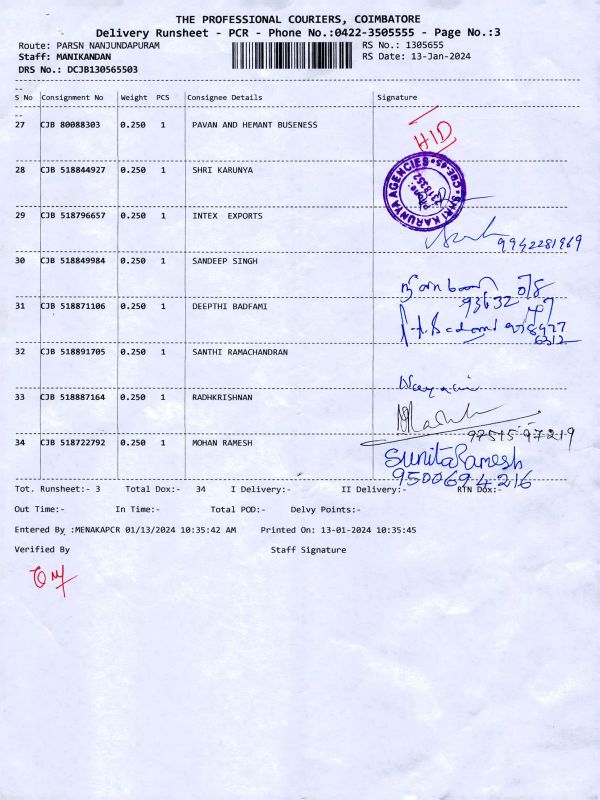 THE PROFESSIONAL COURIERS, COIMBATORE
Delivery Runsheet - PCR - Phone No.:0422-3505555 - Page No.:3
Route: PARSN NANJUNDAPURAM
RS No.: 1305655
Staff: MANIKANDAN
RS Date: 13-Jan-2024
DRS No.: DCJB130565503
S No Consignment No Weight PCS Consignee Details Signature
27 CJB 80088303 0.250 1 PAVAN AND HEMANT BUSENESS
HID
28 CJB 518844927 0.250 1 SHRI KARUNYA
SHRI KARUNYA AGENCIES CBE-45
29 CJB 518796657 0.250 1 INTEX EXPORTS
9942281969
30 CJB 518849984 0.250 1 SANDEEP SINGH
31 CJB 518871106 0.250 1 DEEPTHI BADFAMI
32 CJB 518891705 0.250 1 SANTHI RAMACHANDRAN
33 CJB 518887164 0.250 1 RADHKRISHNAN
9751597219
34 CJB 518722792 0.250 1 MOHAN RAMESH
Sunita Ramesh
9500694216
Tot. Runsheet:- 3 Total Dox:- 34 I Delivery:- II Delivery:- RTN Dox:-
Out Time:- In Time:- Total POD:- Delvy Points:-
Entered By :MENAKAPCR 01/13/2024 10:35:42 AM Printed On: 13-01-2024 10:35:45
Verified By Staff Signature